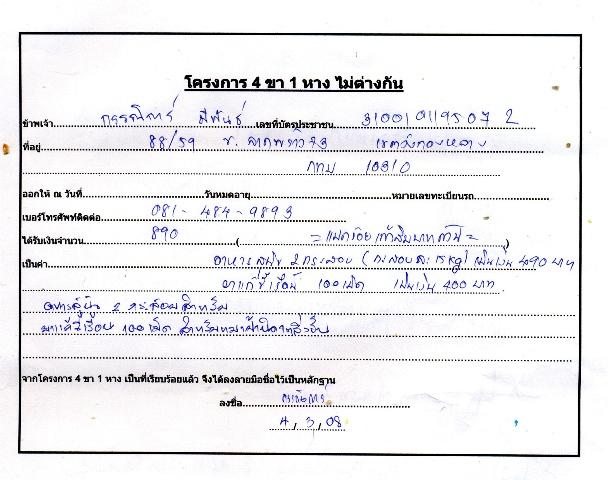 โครงการ 4 ขา 1 หาง ไม่ต่างกัน
ข้าพเจ้า กรรณิการ์ มีพันธ์ เลขที่บัตรประชาชน 3100191195072
ที่อยู่ 88/59 ซ. ลาดพร้าว 73 เขตวังทองหลาง
กทม 10310
ออกให้ ณ วันที่ วันหมดอายุ หมายเลขทะเบียนรถ
เบอร์โทรศัพท์ติดต่อ 081-484-9893
ได้รับเงินจำนวน 890 ( = แปดร้อยเก้าสิบบาทถ้วน = )
เป็นค่า อาหารสุนัข 2 กระสอบ ( กระสอบละ 15 kg ) เป็นเงิน 490 บาท
ยาแก้ขี้เรื้อน 100 เม็ด เป็นเงิน 400 บาท
2 กระสอบสำหรับ
100 เม็ด สำหรับหมา
จากโครงการ 4 ขา 1 หาง เป็นที่เรียบร้อยแล้ว จึงได้ลงลายมือชื่อไว้เป็นหลักฐาน
ลงชื่อ กรรณิการ์
4, 3, 08